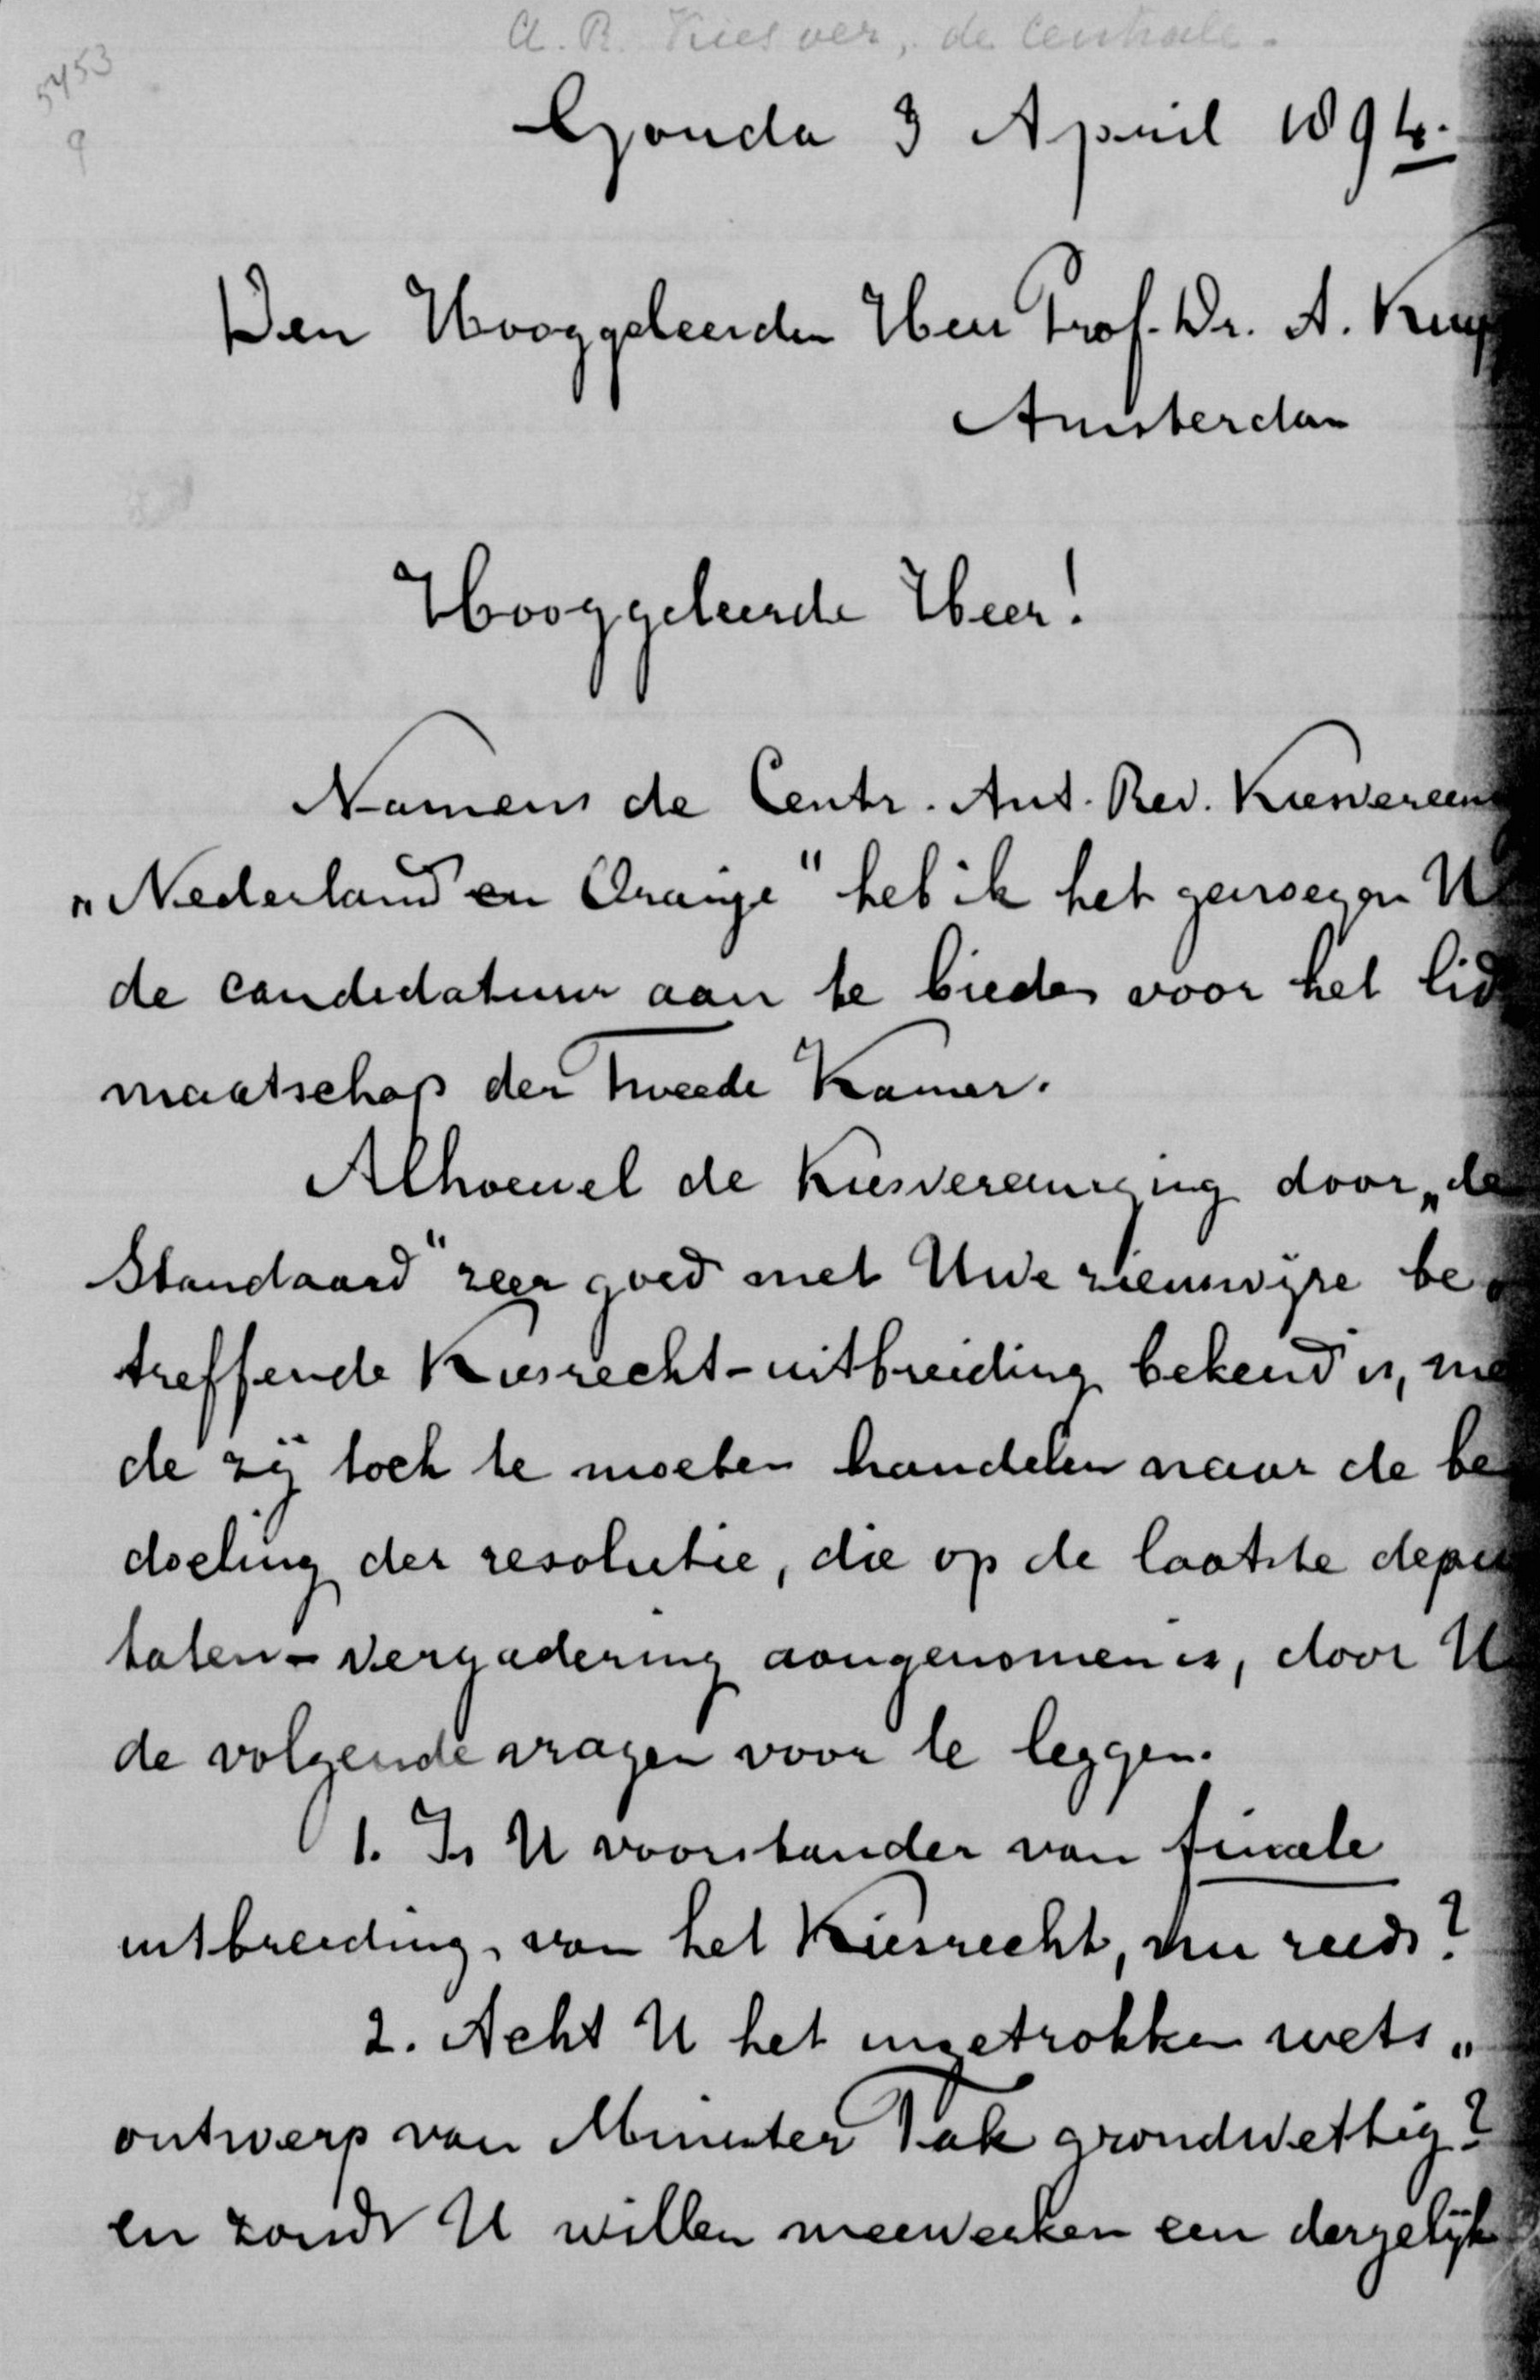 A. R. Kiesver, de Centrale.
5453
9
Gouda 3 April 1894.
Den Hooggeleerden Heer Prof. Dr. A. Kuyp
Amsterdam
Hooggeleerde Heer!
Namens de Centr. Ant. Rev. Kiesvereen
„Nederland en Oranje" heb ik het genoegen U
de candidatuur aan te bieden voor het lid
maatschap der Tweede Kamer.
Alhoewel de Kiesvereeniging door „de
Standaard" zeer goed met Uwe zienswijze be„
treffende Kiesrecht-uitbreiding bekend is, me
de zij toch te moeten handelen naar de be
doeling der resolutie, die op de laatste depu
taten-vergadering aangenomen is, door U
de volgende vragen voor te leggen.
1. Is U voorstander van finale
uitbreiding van het Kiesrecht, nu reeds?
2. Acht U het ingetrokken wets„
ontwerp van Minister Tak grondwettig?
en zoudt U willen meewerken een dergelijk